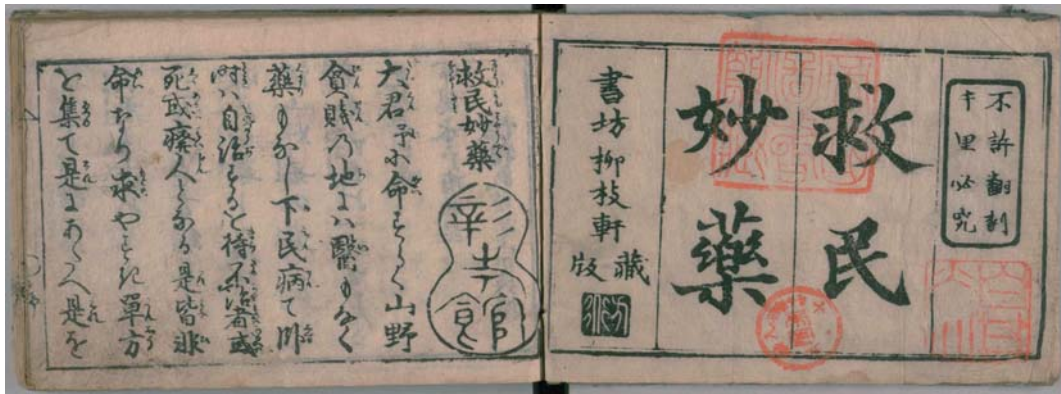 不許翻刻
千里必究
救民
妙藥
書坊柳枝軒藏版
救民妙藥
彰考館
大君予に命すらく山野
貧賤の地には醫もなく
藥もなし下民病て臥
時は自治するを待不治者或
死或癈人となる是皆非
命なり求やすき單方
を集て是にあたへ是を